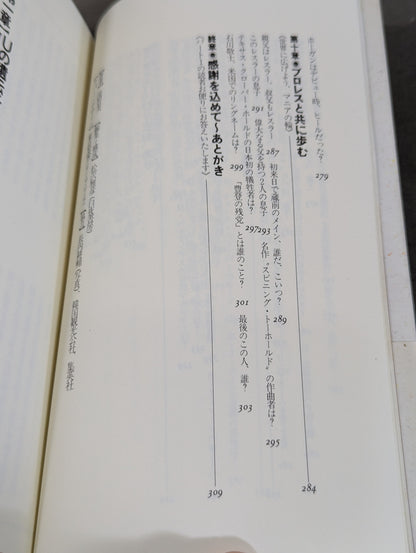 ホーガンはデビュー時、ヒールだった？ 279
第十章●プロレスと共に歩む 284
（世界に広げよう、マニアの輪）
親父はレスラー、叔父もレスラー 287 初来日で蔵前のメイン、誰だ、こいつ？ 289
このレスラーの息子 291 偉大なる父を持つ2人の息子 293 名作〝スピニング・トーホールド〟の作曲者は？ 295
テキサス・クローバー・ホールドの日本初の犠牲者は？ 297 「豊登の残党」とは誰のこと？
石川敬士、米国でのリングネームは？ 299 301 最後のこの人、誰？ 303
終章●感謝を込めて〜あとがき 309
（パートⅠの読者お便りにお答えいたします）
（写真）、韓国観光公社、集英社